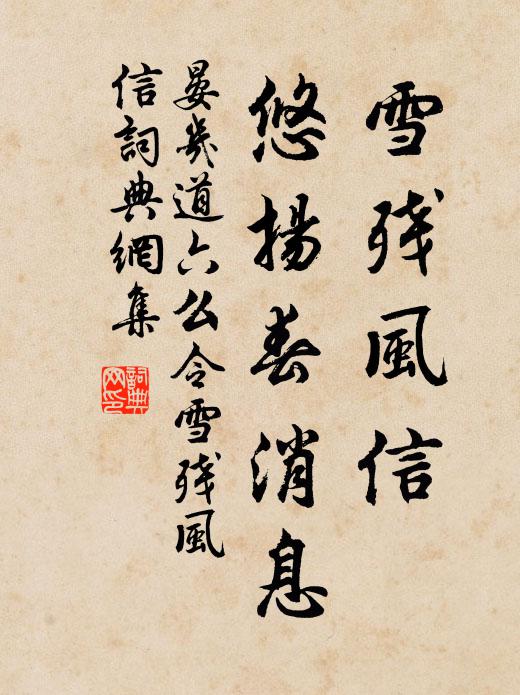 雪残風信
悠揚春消息
晏幾道六么令雪残風
信詞典網集
詞典
网印